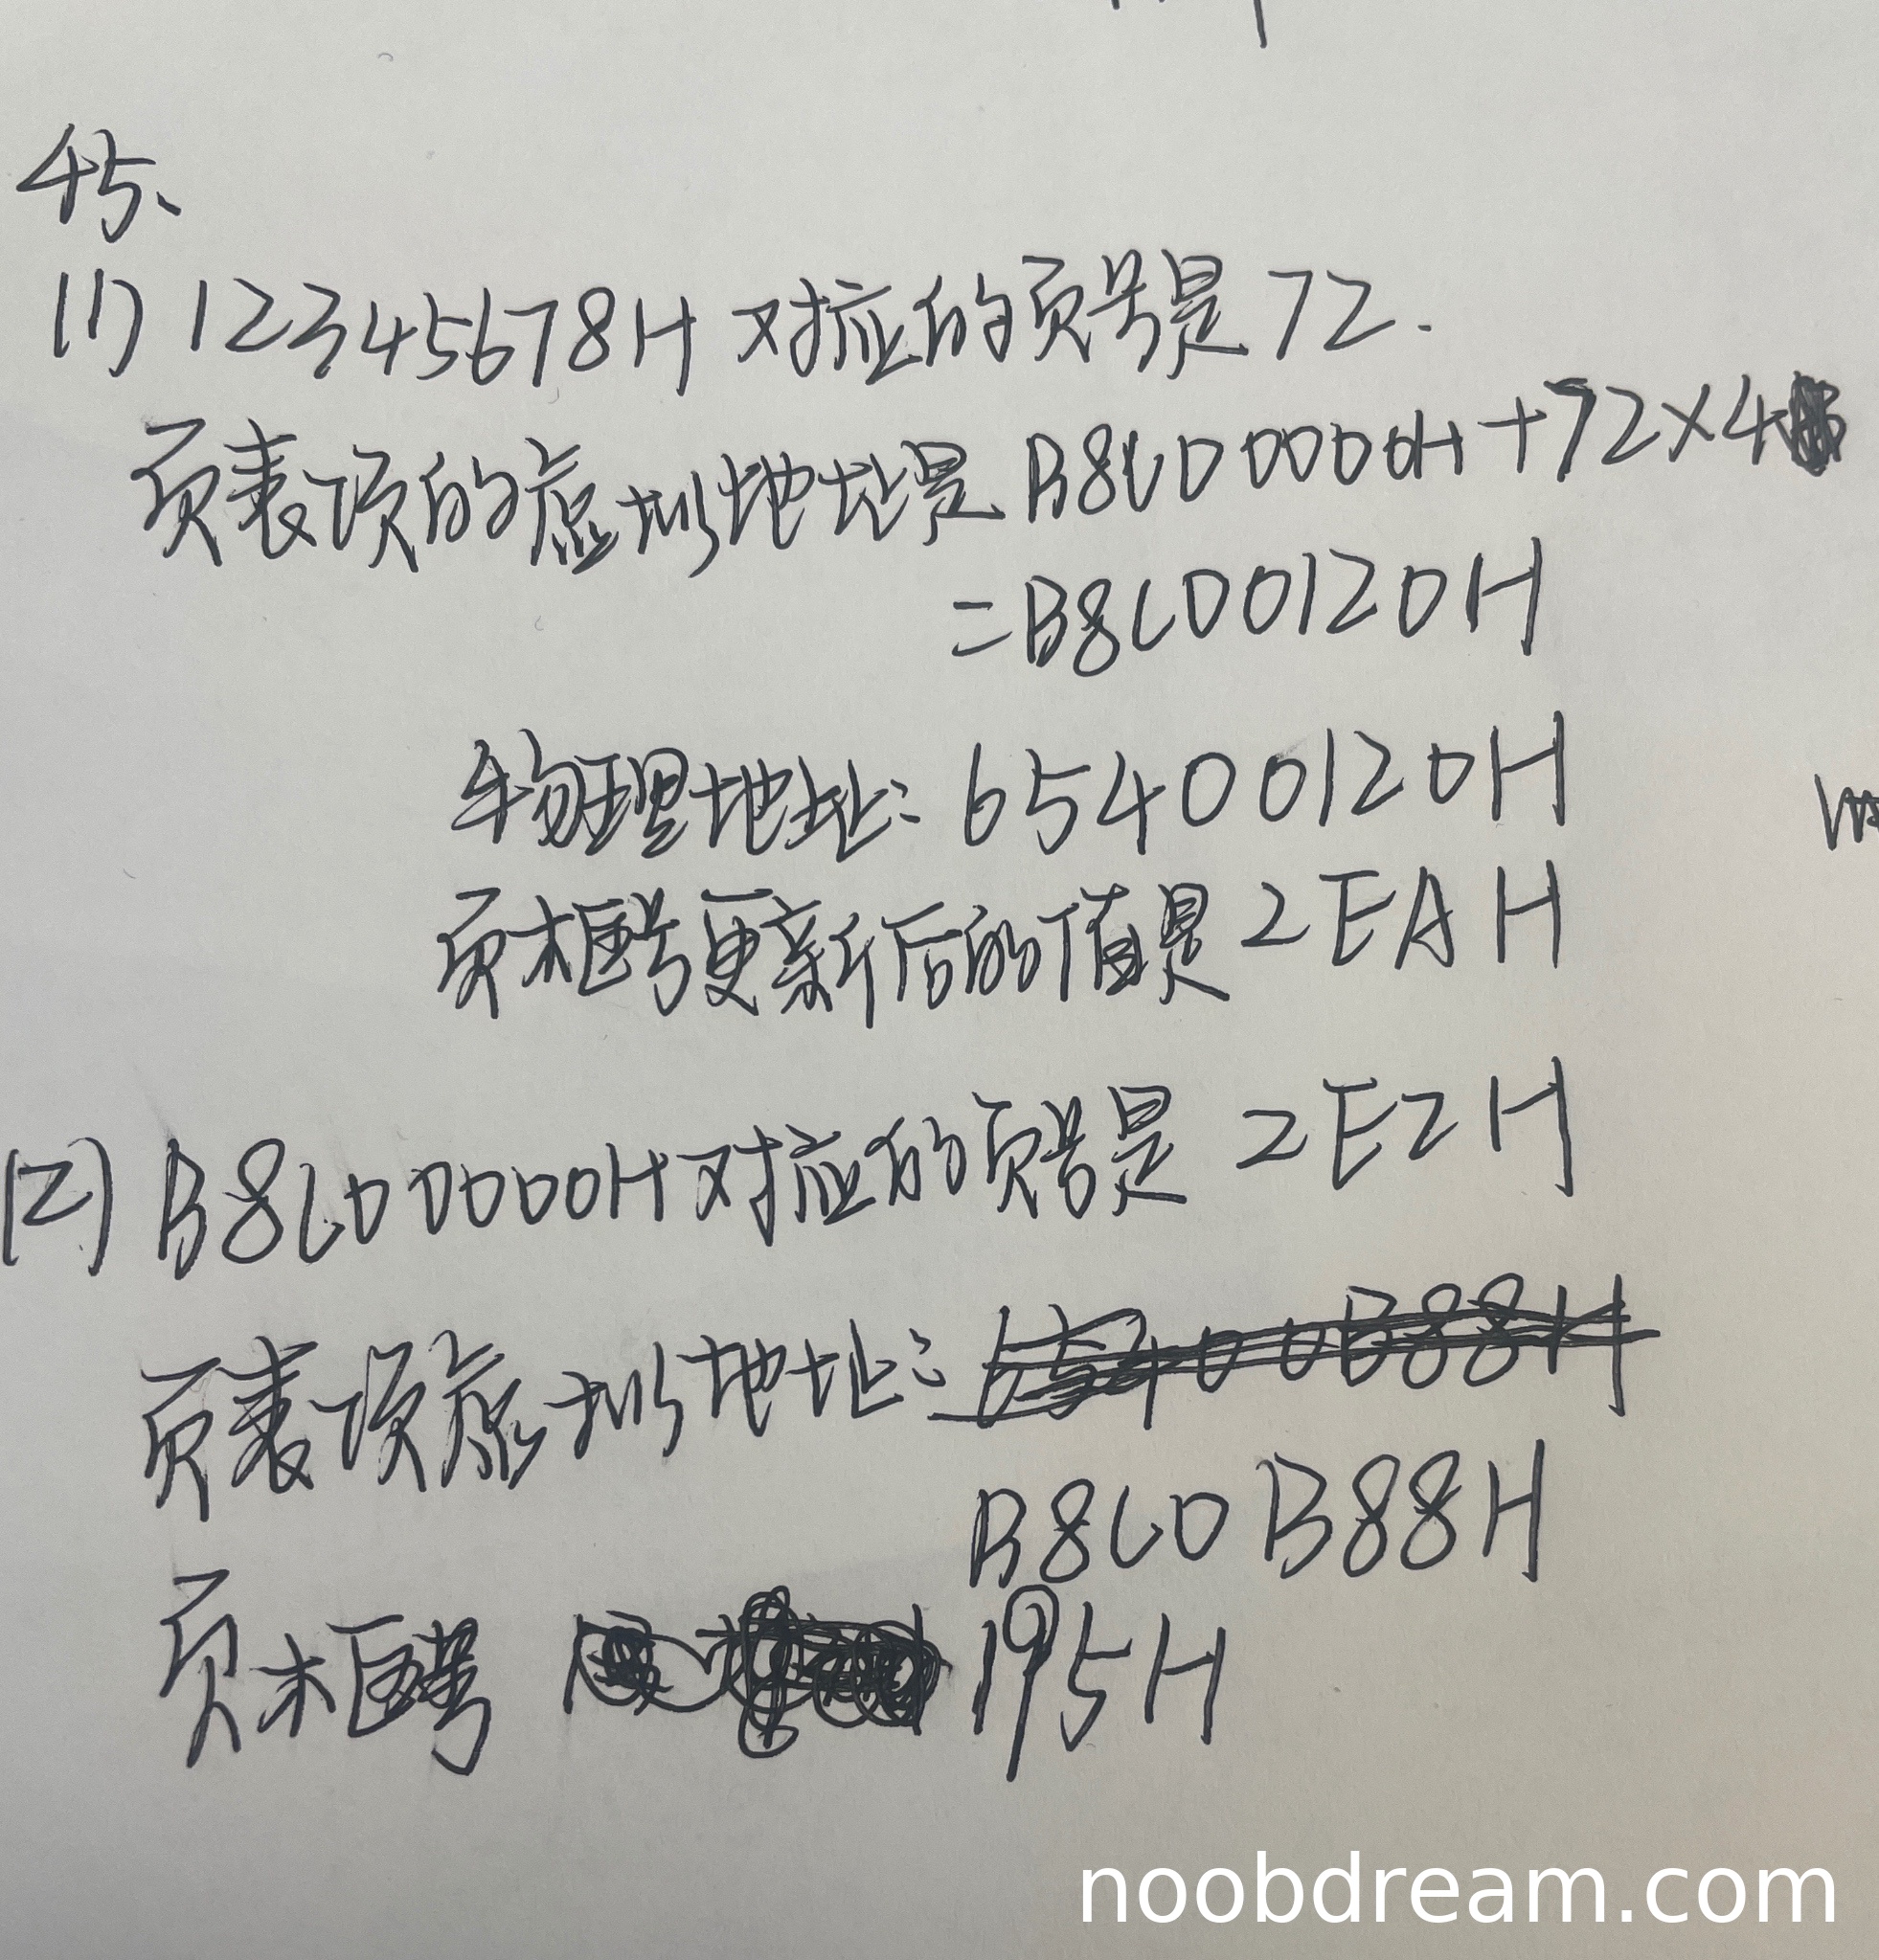 45、
(1) 12345678H 对应的页号是72.
页表项的虚拟地址是 B8C00000H+72×4
=B8C00120H
物理地址: 65400120H
页框号更新后的值是2EAH
(2) B8C00000H对应的页号是 2E2H
页表项虚拟地址:
B8C0B88H
页框号 195H
noobdream.com